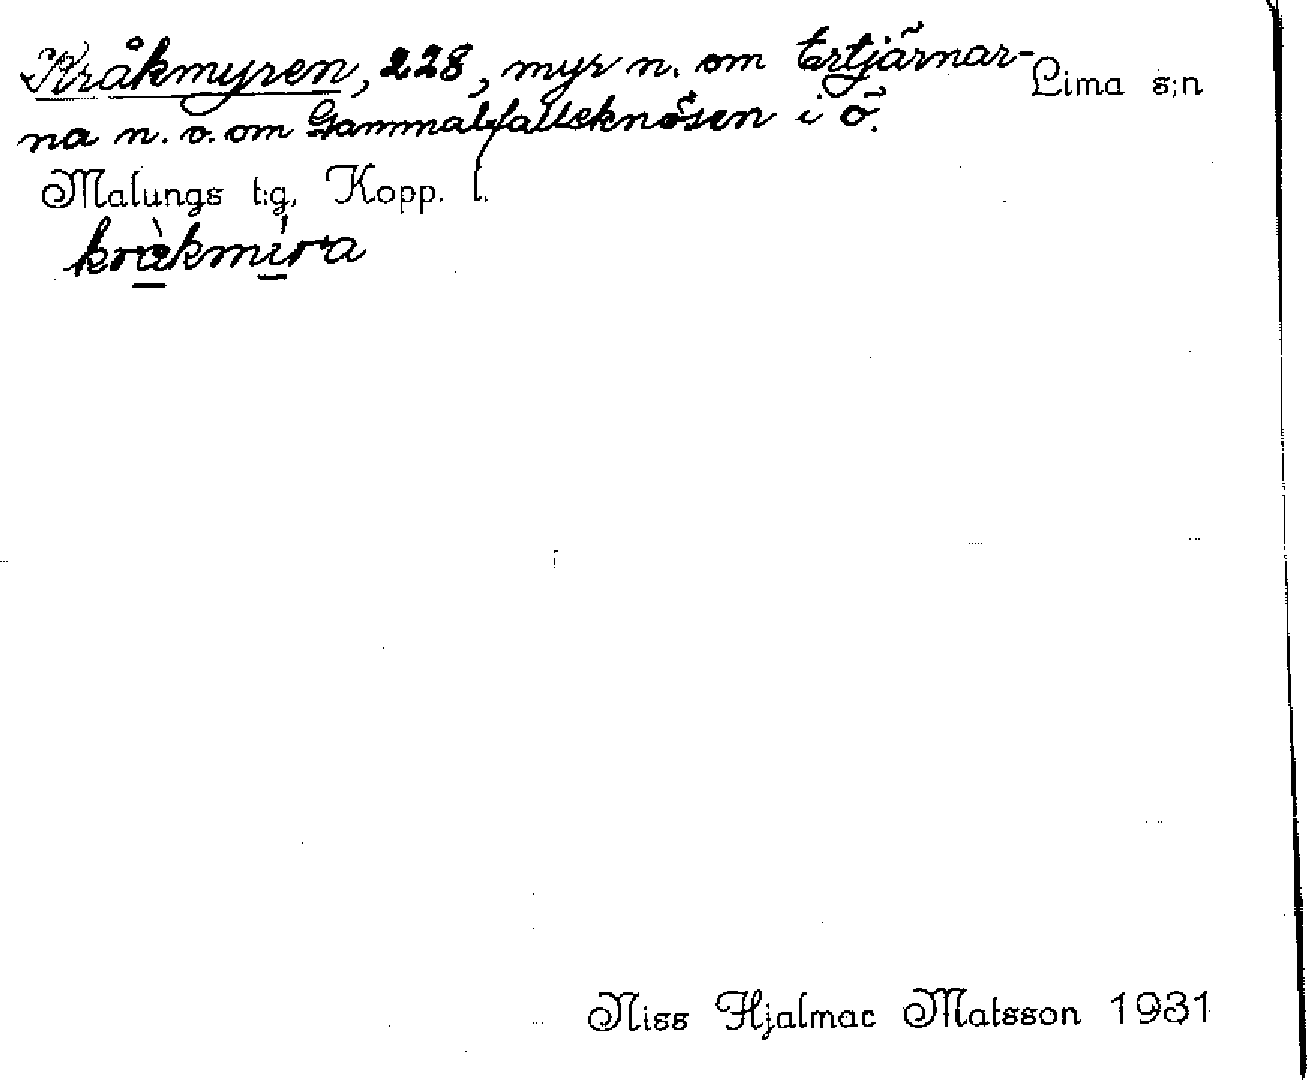 Kråkmyren, 228, myr n. om Ertjärnar- Lima s:n
na n. v. om Gammalfalleknösen i ö.
Malungs t:g. Kopp. l.
kràkmíra
Niss Hjalmar Matsson 1931